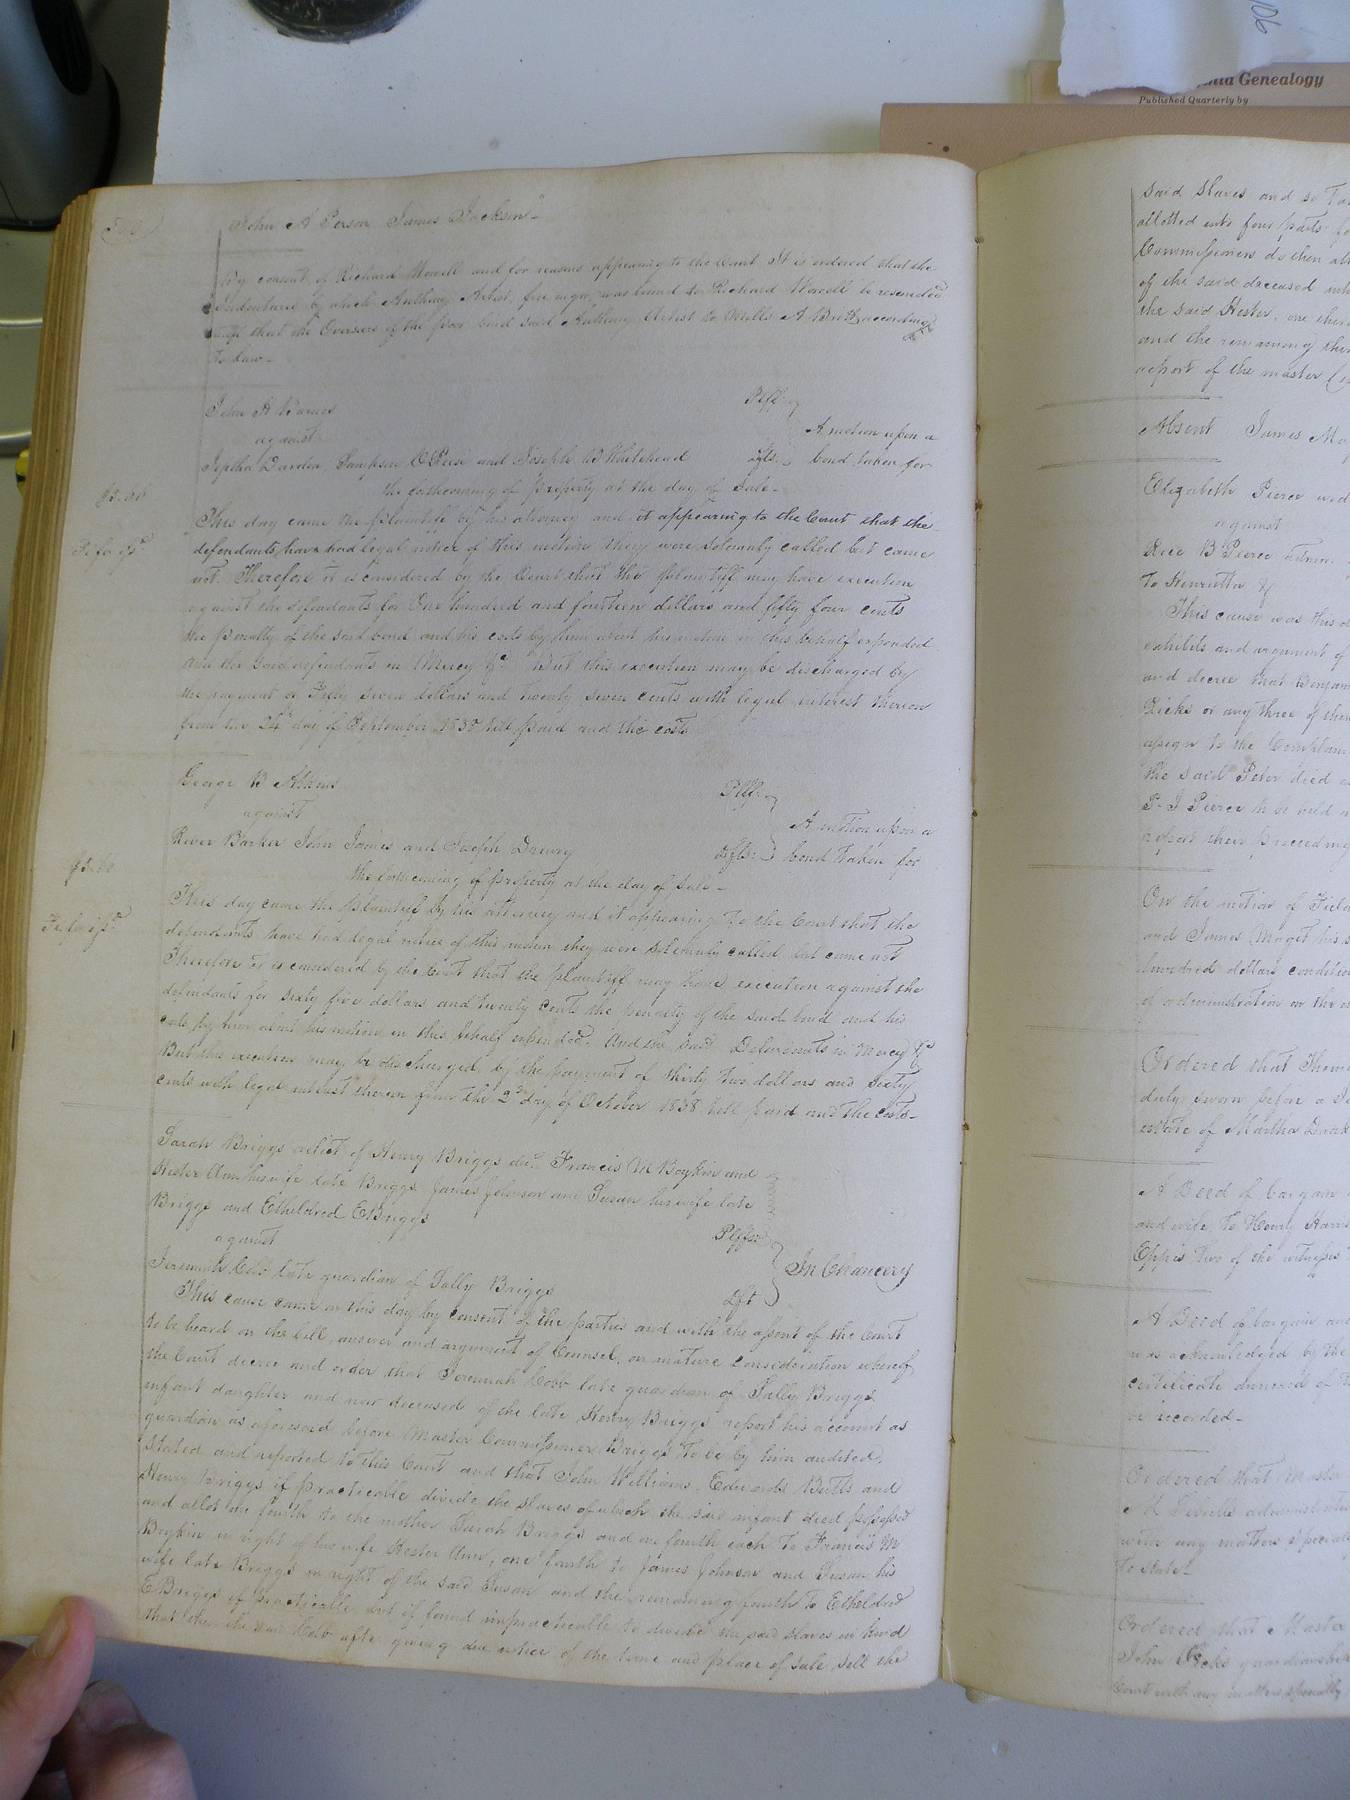 106
Genealogy
Published Quarterly by
John A Person James Jackson
By consent of Richard Worrell and for reasons appearing to the Court It is ordered that the
Indentures by which Anthony Artist, free negro, was bound to Richard Worrell be rescinded
and that the Overseers of the poor bind said Anthony Artist to Mills A Britt according
to law
John H Barnes Plff
against A motion upon a
Jeptha Darden and Joseph W Whitehead dfts bond taken for
the forthcoming of property at the day of Sale
This day came the plaintiff by his attorney and it appearing to the Court that the
defendants have had legal notice of this motion they were solemnly called but came
not. Therefore it is considered by the Court that the plaintiff may have execution
against the defendants for One hundred and fourteen dollars and fifty four cents
the penalty of the said bond and his costs by him about his motion in this behalf expended
and the said defendants in Mercy &c But this execution may be discharged by
the payment of Fifty seven dollars and twenty seven cents with legal interest thereon
from the 24th day of September 1838 till paid and the costs
George B Atkins Plff
against A motion upon a
Barker John James and Joseph Drewry dfts bond taken for
the forthcoming of property at the day of Sale
This day came the plaintiff by his attorney and it appearing to the Court that the
defendants have had legal notice of this motion they were solemnly called but came not
Therefore it is considered by the Court that the plaintiff may have execution against the
defendants for sixty five dollars and twenty cents the penalty of the said bond and his
costs by him about his motion in this behalf expended. And the said Defendants in Mercy &c
But this execution may be discharged by the payment of thirty two dollars and sixty
cents with legal interest thereon from the 2nd day of October 1838 till paid and the costs
Sarah Briggs relict of Henry Briggs decd Francis M Boykin and
Hester Ann his wife late Briggs James Johnson and Susan his wife late
Briggs and Etheldred E Briggs Plffs
against In Chancery
Jeremiah Cobb late guardian of Sally Briggs Dft
This cause came on this day by consent of the parties and with the assent of the Court
to be heard on the bill, answer and argument of Counsel, on mature consideration whereof
the Court decree and order that Jeremiah Cobb late guardian of Sally Briggs
infant daughter and now deceased of the late Henry Briggs report his account as
guardian as aforesaid before Master Commissioner Briggs to be by him audited,
stated and reported to this Court and that John Williams, Edwards Butts and
Henry Briggs if practicable divide the slaves of which the said infant died possessed
and allot one fourth to the mother Sarah Briggs and one fourth each to Francis M
Boykin in right of his wife Hester Ann, one fourth to James Johnson and Susan his
wife late Briggs in right of the said Susan and the remaining fourth to Etheldred
E Briggs if practicable, but if found impracticable to divide the said slaves in kind
that then the said Cobb after giving due notice of the time and place of sale, sell the
said slaves and
allotted into four parts
Commissioners do then
of the said deceased
the said Hester, one
and the remaining
report of the master
Absent James
Elizabeth Pierce
against
Rice B Pierce
to Henrietta
This cause was this
exhibits and argument of
and decree that
Ricks or any three of
assign to the
the said Peter died
P. J Pierce
report their proceeding
On the motion of
and James Maget his
hundred dollars condition
of administration on the
Ordered that
duly sworn before a
estate of Martha
A Deed of bargain
and wife to Henry Harris
Eppes two of the witnesses
A Deed of bargain and
was acknowledged by the
certificate annexed
be recorded
Ordered that Master
with any matters specially
to State
Ordered that Master
John Ricks guardianship
Court with any matters specially